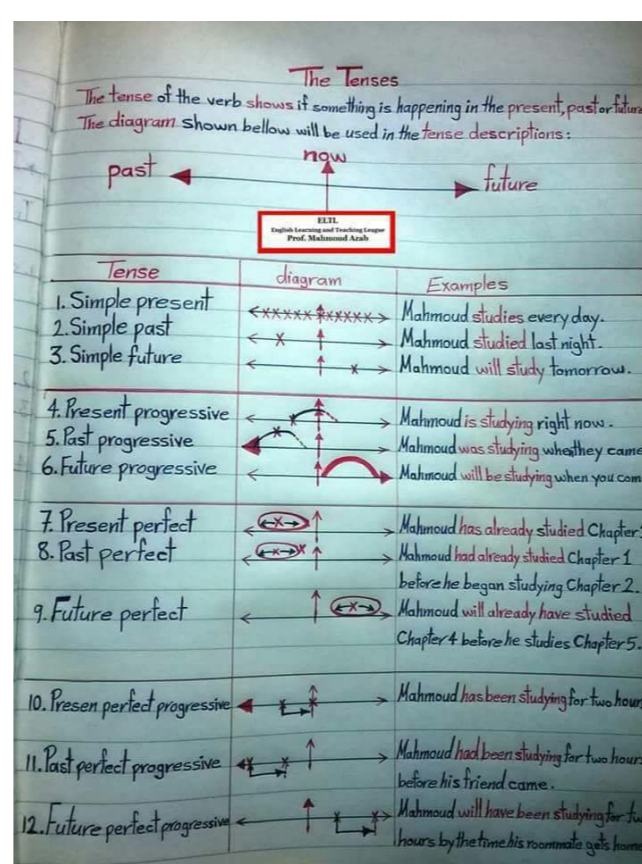 The Tenses
The tense of the verb shows if something is happening in the present, past or future
The diagram shown bellow will be used in the tense descriptions:
now
past
future
ELTL
English Learning and Teaching League
Prof. Mahmoud Arab
Tense diagram Examples
1. Simple present Mahmoud studies every day.
2. Simple past Mahmoud studied last night.
3. Simple future Mahmoud will study tomorrow.
4. Present progressive Mahmoud is studying right now.
5. Past progressive Mahmoud was studying when they came
6. Future progressive Mahmoud will be studying when you com
7. Present perfect Mahmoud has already studied Chapter
8. Past perfect Mahmoud had already studied Chapter 1
before he began studying Chapter 2.
9. Future perfect Mahmoud will already have studied
Chapter 4 before he studies Chapter 5.
10. Presen perfect progressive Mahmoud has been studying for two hour
11. Past perfect progressive Mahmoud had been studying for two hour
before his friend came.
12. Future perfect progressive Mahmoud will have been studying for tw
hours by the time his roommate gets hom